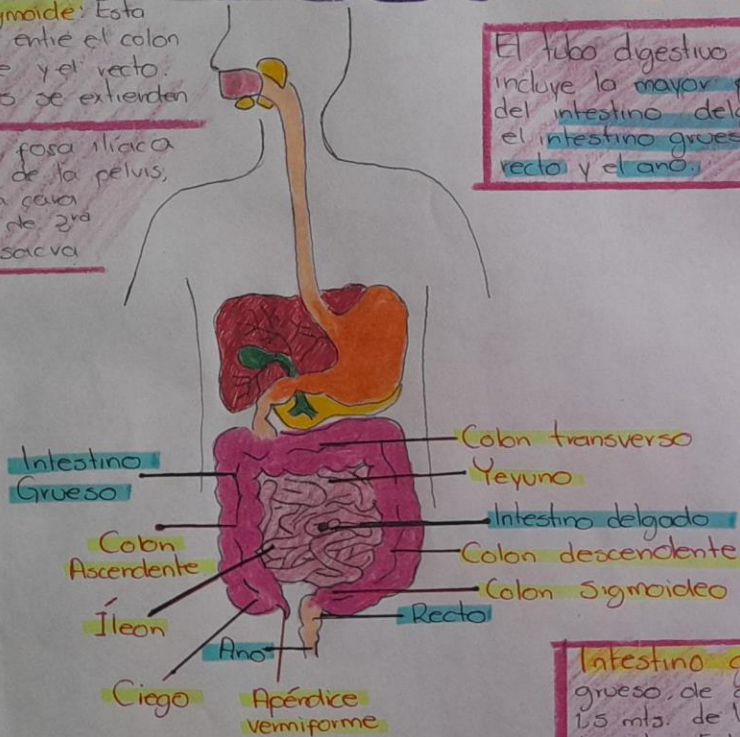 gmoide: Esta
entre el colon
e y el recto.
s se extienden
fosa iliaca
de la pelvis,
cara
de 3ra
sacra
El tubo digestivo
incluye la mayor
del intestino del
el intestino grues
recto y el ano.
Intestino
Grueso
Colon
Ascendente
Íleon
Ciego
Ano
Apéndice
vermiforme
Colon transverso
Yeyuno
Intestino delgado
Colon descendente
Colon sigmoideo
Recto
Intestino g
grueso, de
1,5 mts. de